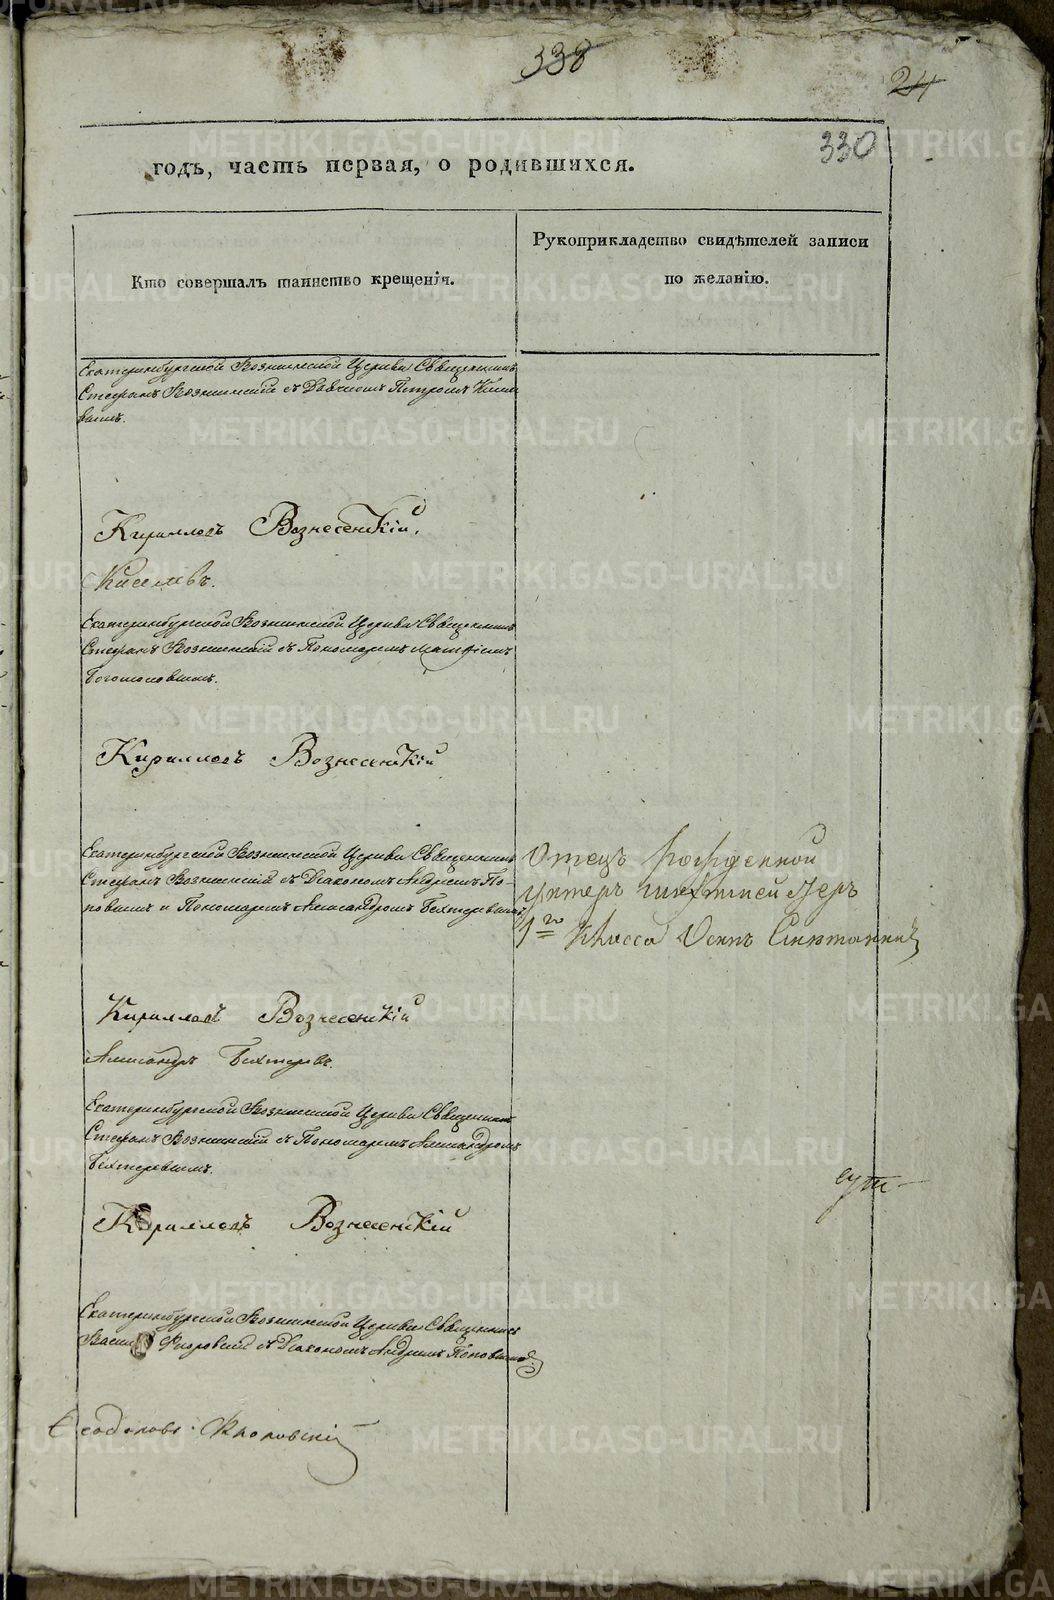 338
24
330
годъ, часть первая, о родившихся.
Кто совершалъ таинство крещенія.
Рукоприкладство свидѣтелей записи
по желанію.
Екатеринбургской Вознесенской Церкви Священникъ
Стефанъ Вознесенскій съ Петромъ Кисе
левымъ.
Кирилловъ Вознесенскій,
Киселевъ.
Екатеринбургской Вознесенской Церкви Священникъ
Стефанъ Вознесенскій съ Пономаремъ
Богомоловымъ.
Кирилловъ Вознесенскій
Екатеринбургской Вознесенской Церкви Священникъ
Стефанъ Вознесенскій съ Діакономъ Андреемъ По-
повымъ и Пономаремъ Александромъ Бехтеревымъ
Отецъ рожденной
Унтеръ
1го Класса Осипъ
Кирилловъ Вознесенскій
Александръ Бехтеревъ.
Екатеринбургской Вознесенской Церкви Священникъ
Стефанъ Вознесенскій съ Пономаремъ Александромъ
Бехтеревымъ.
Кирилловъ Вознесенскій
Екатеринбургской Вознесенской Церкви Священникъ
Василій Флоровскій съ Діакономъ Андреемъ Поповымъ
Флоровскій
METRIKI.GASO-URAL.RU